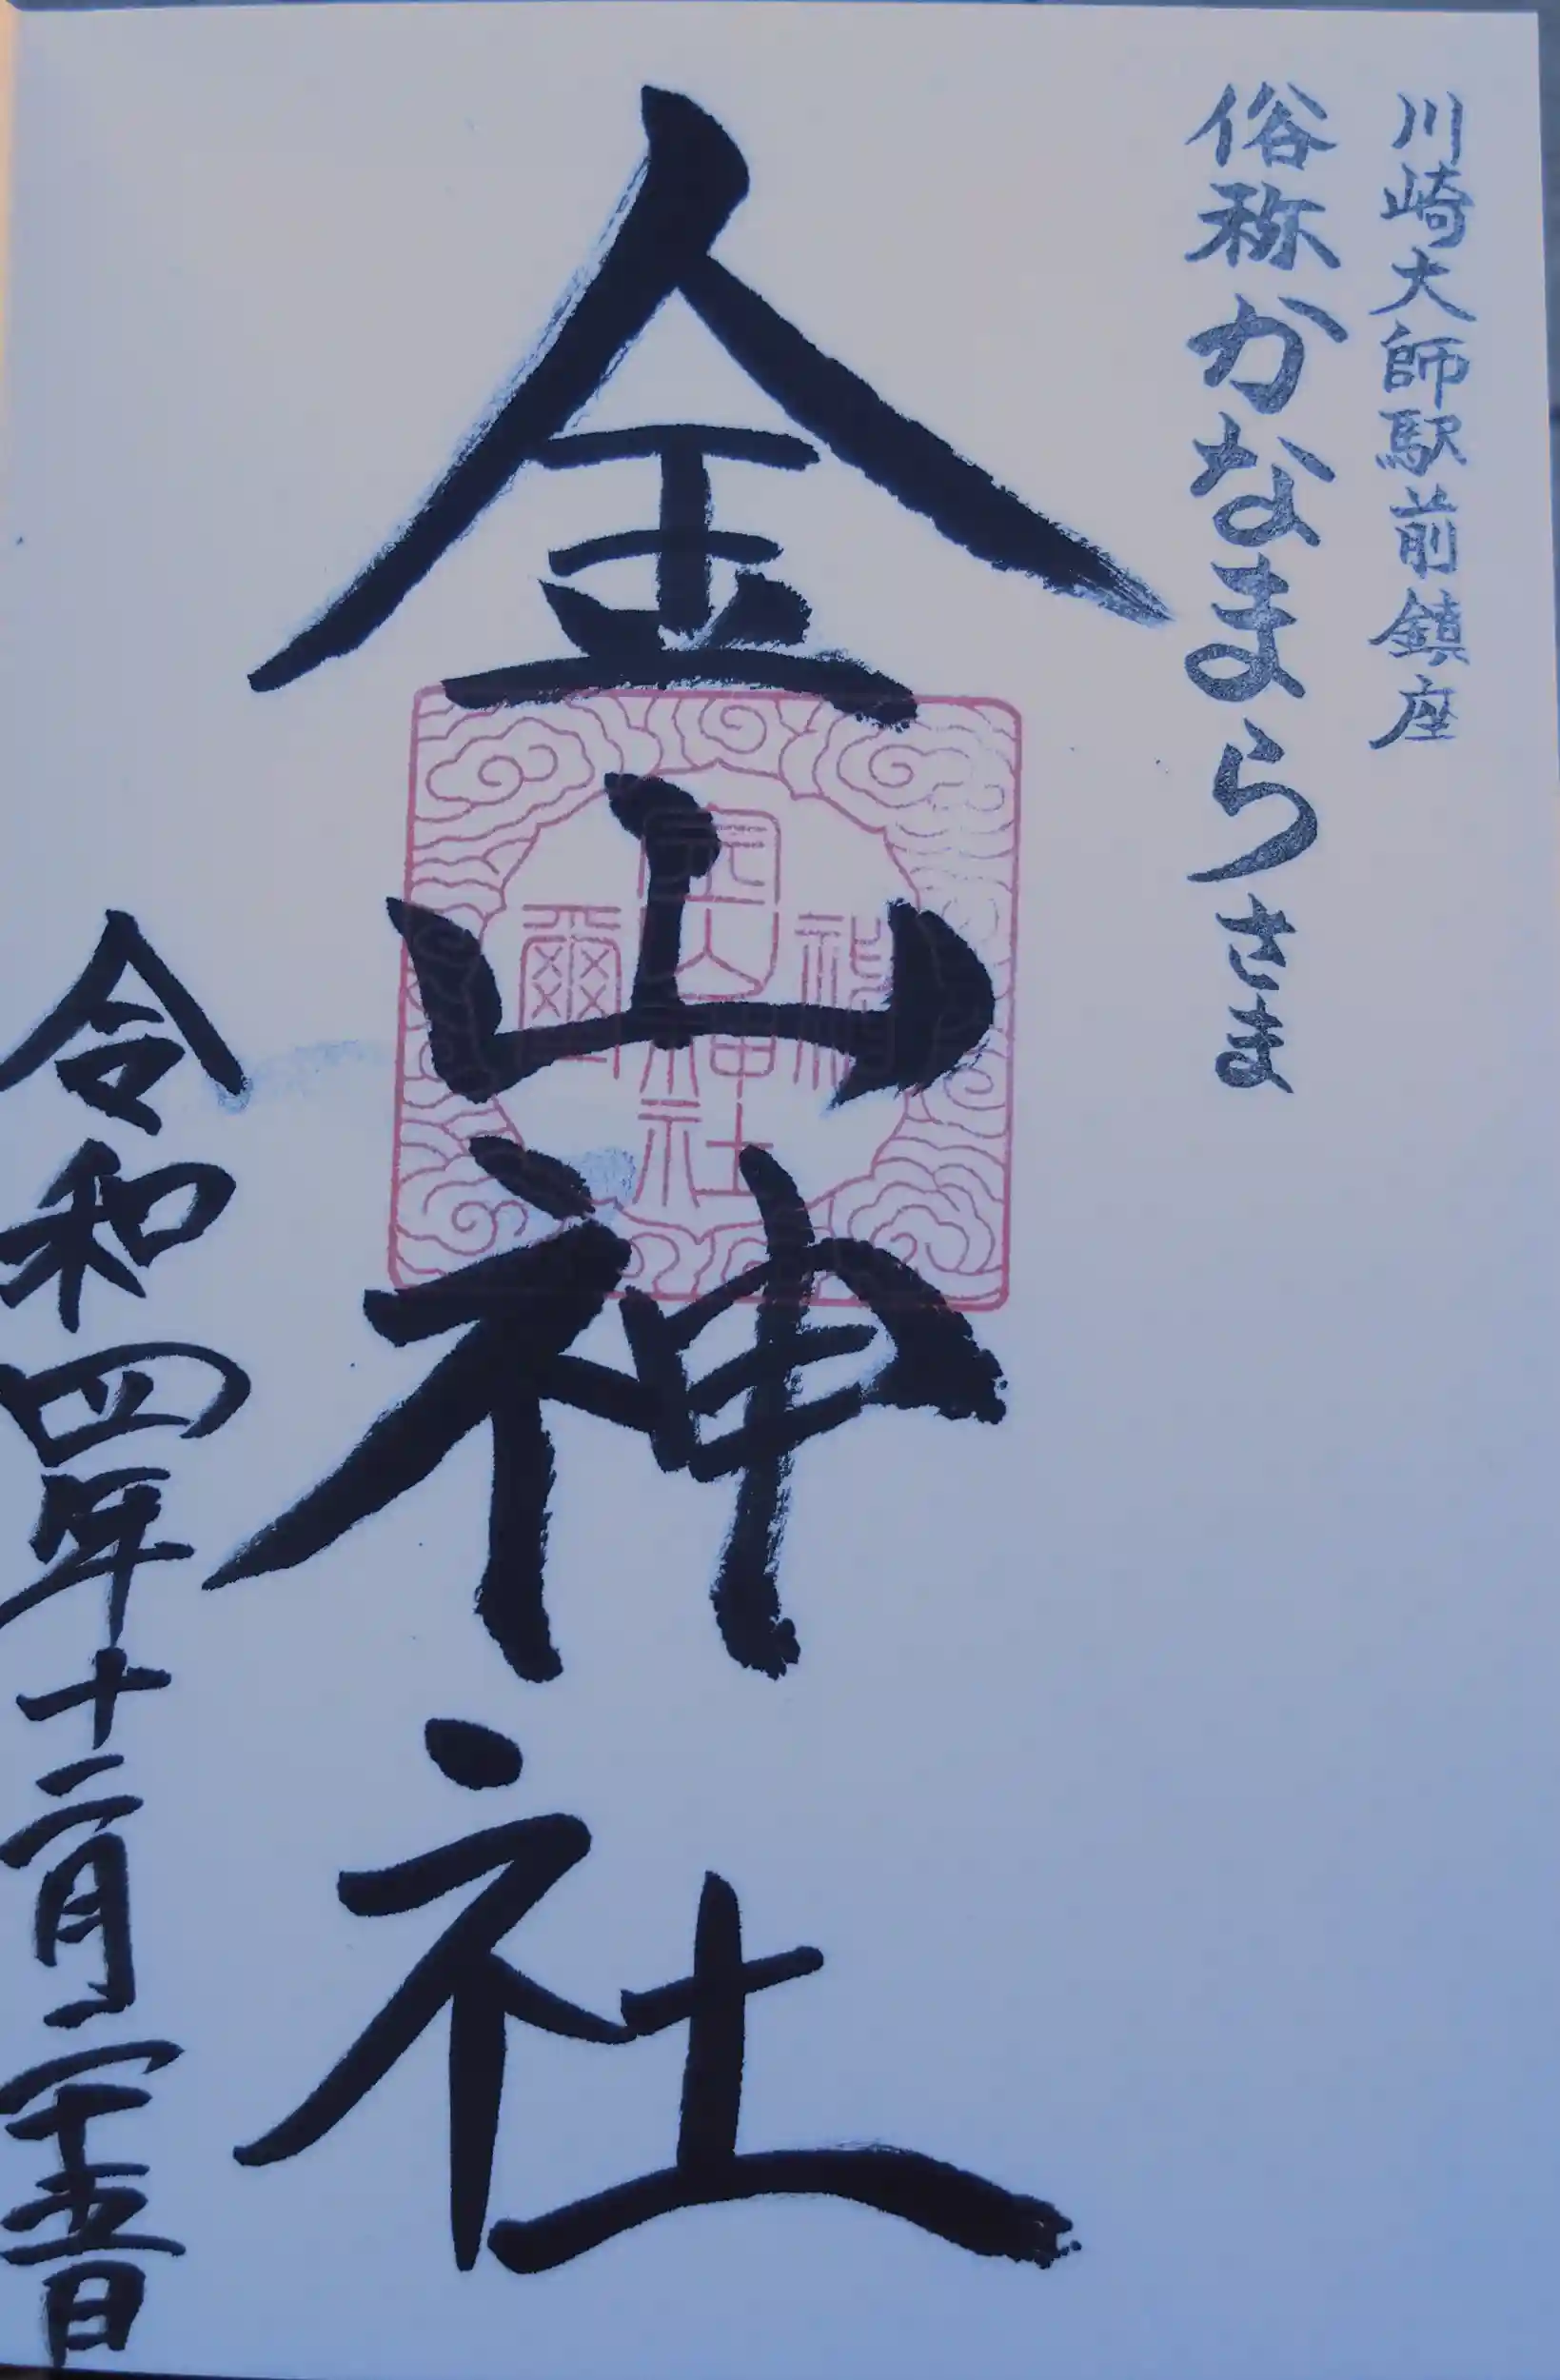 川崎大師駅前鎮座
俗称かなまらさま
金山神社
令和四年十二月二十五日